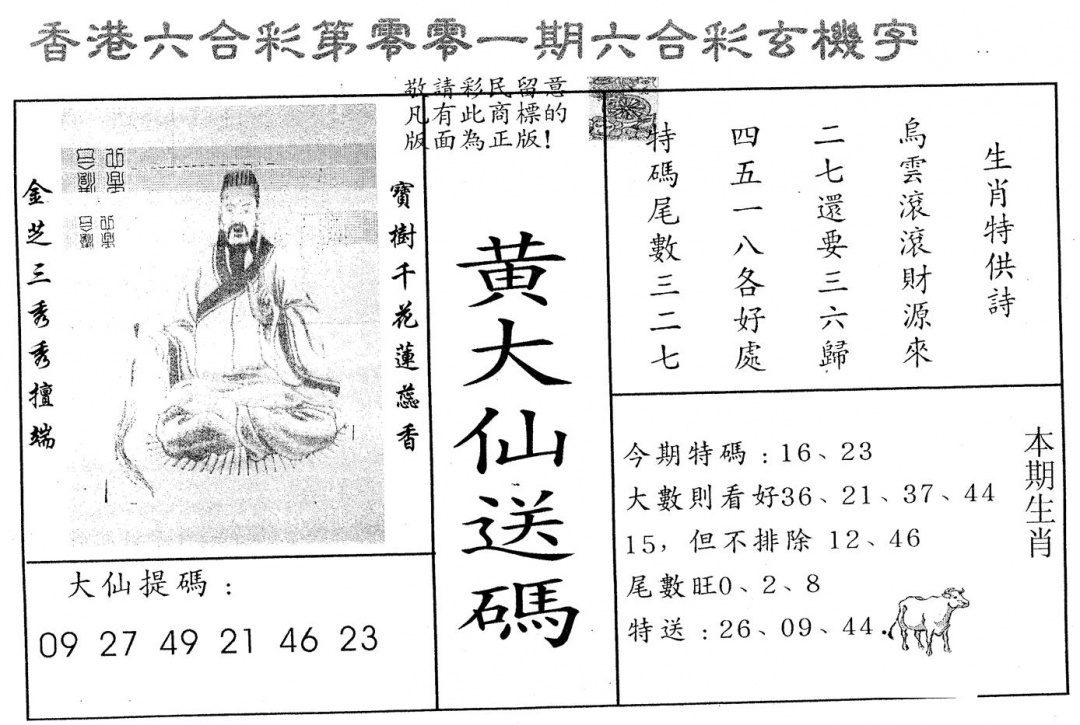 香港六合彩第零零一期六合彩玄機字
敬請彩民留意
凡有此商標的
版面為正版!
寶樹千花蓮蕊香
金芝三秀秀擅端
大仙提碼:
09 27 49 21 46 23
黄大仙送碼
生肖特供詩
烏雲滾滾財源來
二七還要三六歸
四五一八各好處
特碼尾數三二七
本期生肖
今期特碼:16、23
大數則看好36、21、37、44
15,但不排除 12、46
尾數旺0、2、8
特送:26、09、44.